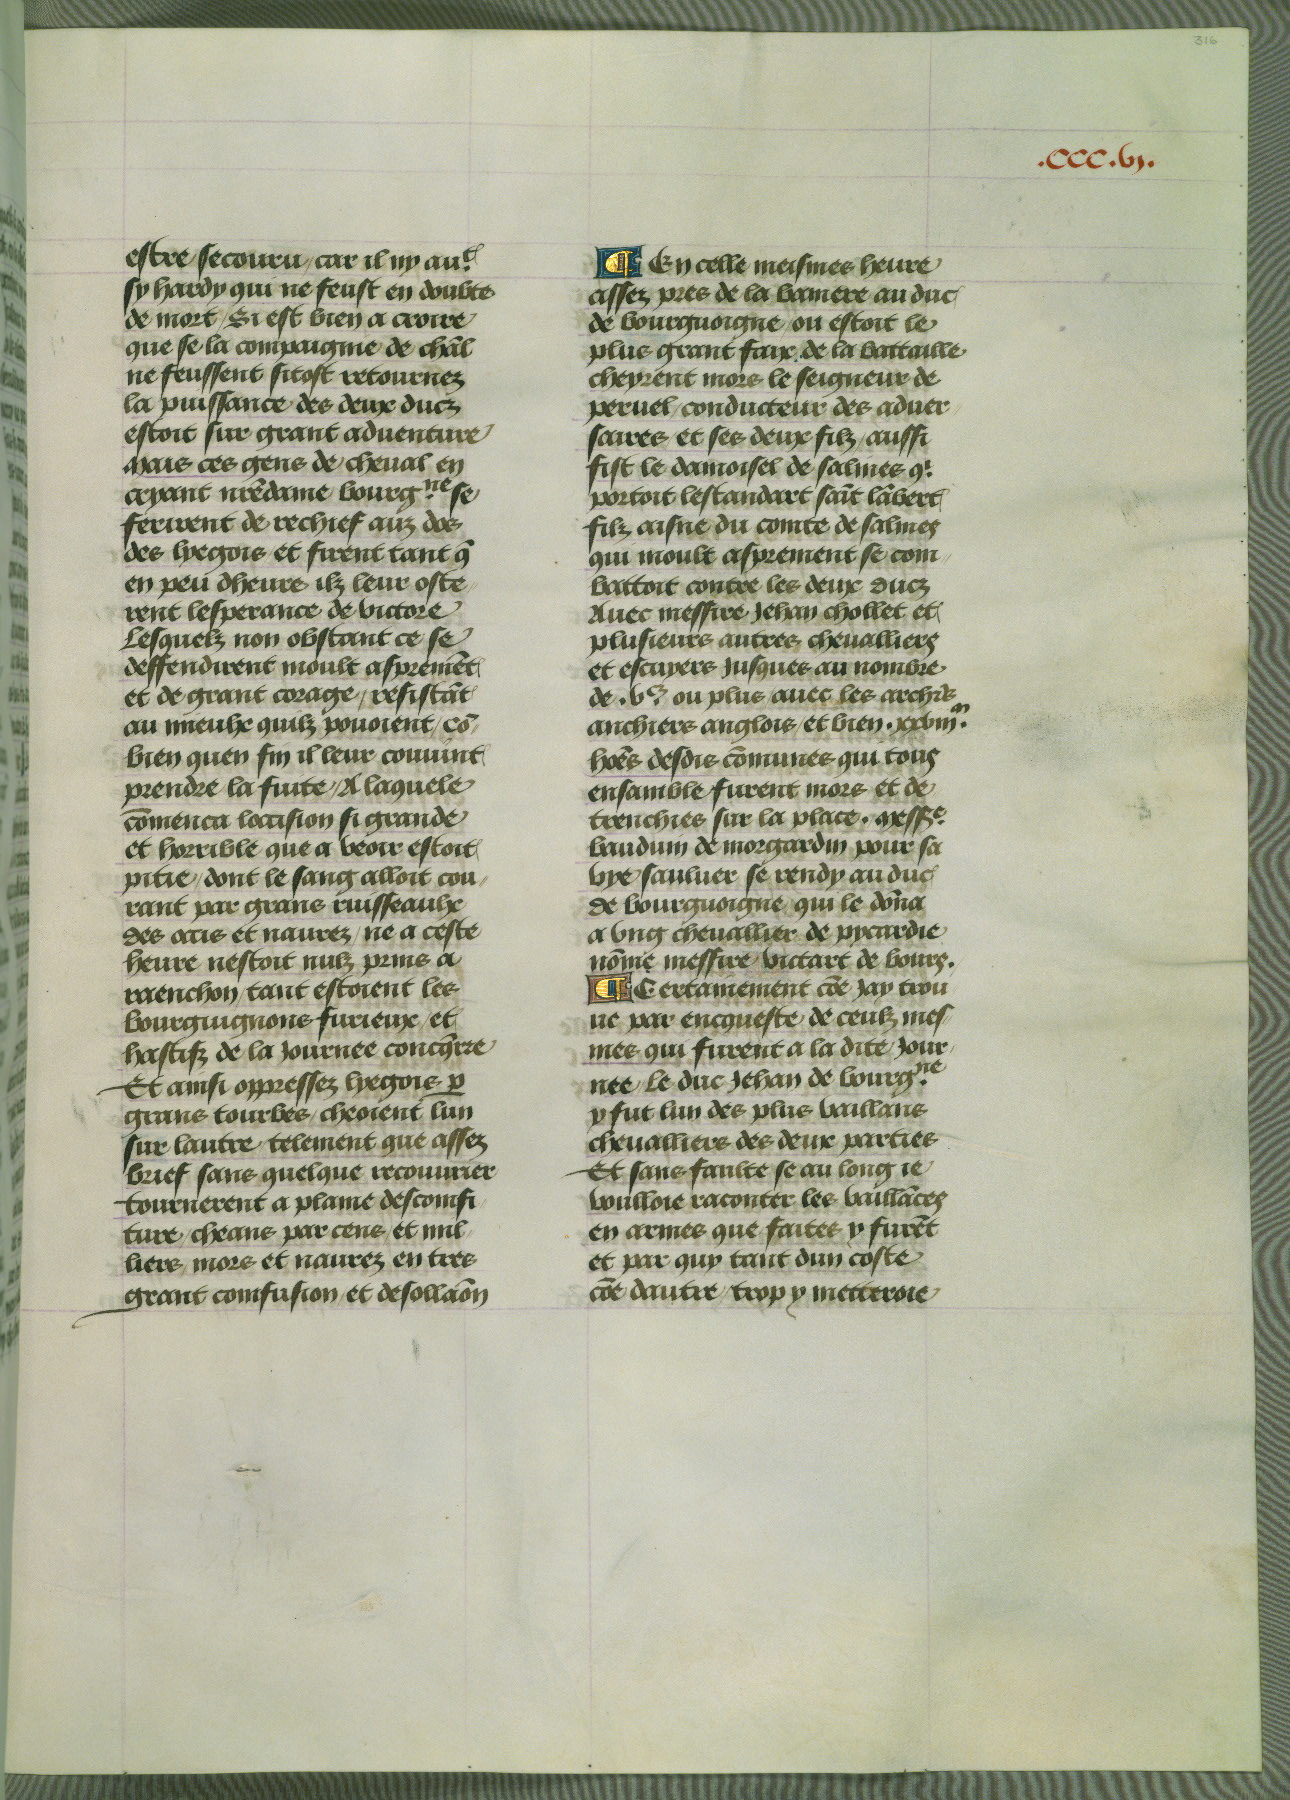 316
.CCC.vj.
estre secouru / car il ny au.t
sy hardy qui ne feust en doubte
de mort / Si est bien a croire
que se la compaignie de chãl
ne feussent sitost retournez
la puissance des deux ducz
estoit sur grant aduenture
Mais ces gens de cheual en
cryant nrẽdame bourg.ne se
ferirent de rechief auz dos
des lyegois et firent tant q̃
en peu dheure ilz leur oste
rent lesperance de victore
Lesquelz non obstant ce se
deffendirent moult aspremẽt
et de grant corage / resistãt
au mieulx quilz pouoient / cõ
bien quen fin il leur conuint
prendre la fuite / A laquele
cõmenca loccision si grande
et horrible que a veoir estoit
pitie / dont le sang alloit cou
rant par grans ruisseaulx
des occis et naurez / ne a ceste
heure nestoit nulz prins a
raenchon / tant estoient les
bourguignons furieux / et
hastifz de la journee concq̃rre
Et ainsi oppressez lyegois p̲
grans tourbes / cheoient lun
sur lautre / telement que assez
brief sans quelque recouurier
tournerent a plaine desconfi
ture / cheans par cens et mil
liers / mors et naurez en tres
grant confusion / et desollaõn
¶ En celle meismes heure
assez pres de la baniere au duc
de bourguoigne / ou estoit le
plus grant faix de la battaille
cheyrent mors le seigneur de
peruel / conducteur des aduer
saires et ses deux filz / aussi
fist le damoisel de salmes q.i
portoit lestandart sãit lãbert
filz aisne du comte de salmes
qui moult asprement se com
battoit contre les deux ducz
Auec messire Jehan chollet et
plusieurs autres cheualliers
et escuyers Jusques au nombre
de .v.c ou plus auec les archr̃s
anchiers anglois et bien .xxviij.m
hoẽs desdis cõmunes qui tous
ensamble furent mors et de
trenchies sur la place. Mess.e
bauduin de morgardin pour sa
vye sauluer se rendy au duc
de bourguoigne / qui le dõna
a vng cheuallier de pycardie
nõme messire victart de bours.
¶ Certainement cõe jay trou
ue par encqueste de ceulz mes
mes qui furent a la dite jour
nee / Le duc Jehan de bourg.ne
y fut lun des plus vaillans
cheualliers des deux parties
Et sans faulte se au long ie
voulloie raconter les vaillãces
en armes que faites y furẽt
et par quy tant dun coste
cõe dautre / trop y metteroie